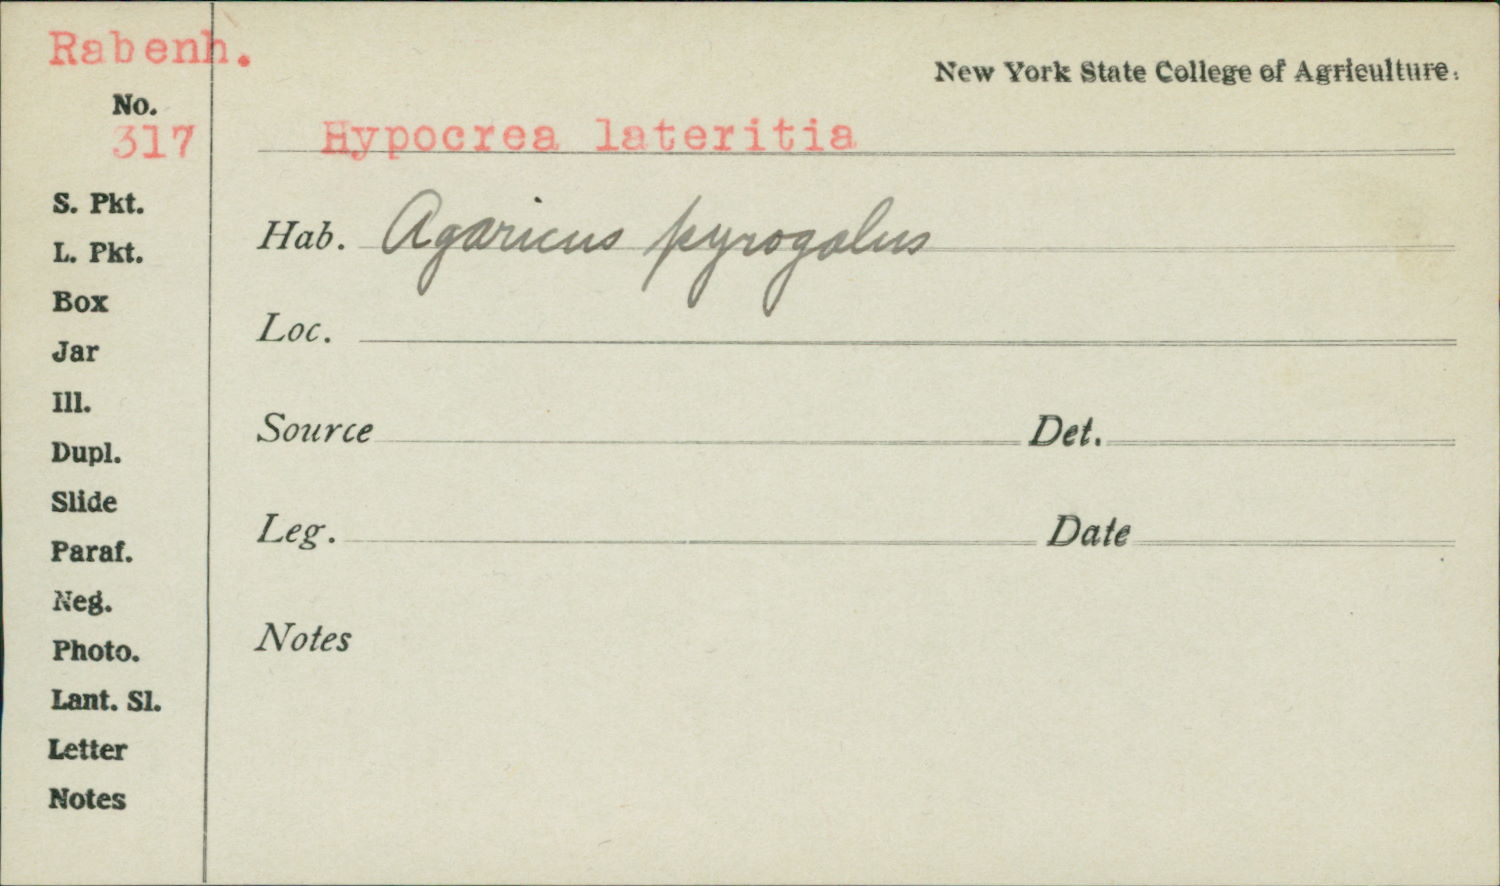 Rabenh.
New York State College of Agriculture.
No.
317
Hypocrea lateritia
S. Pkt.
Hab. Agaricus pyrogalus
L. Pkt.
Box
Loc.
Jar
Ill.
Source Det.
Dupl.
Slide
Leg. Date
Paraf.
Neg.
Notes
Photo.
Lant. Sl.
Letter
Notes